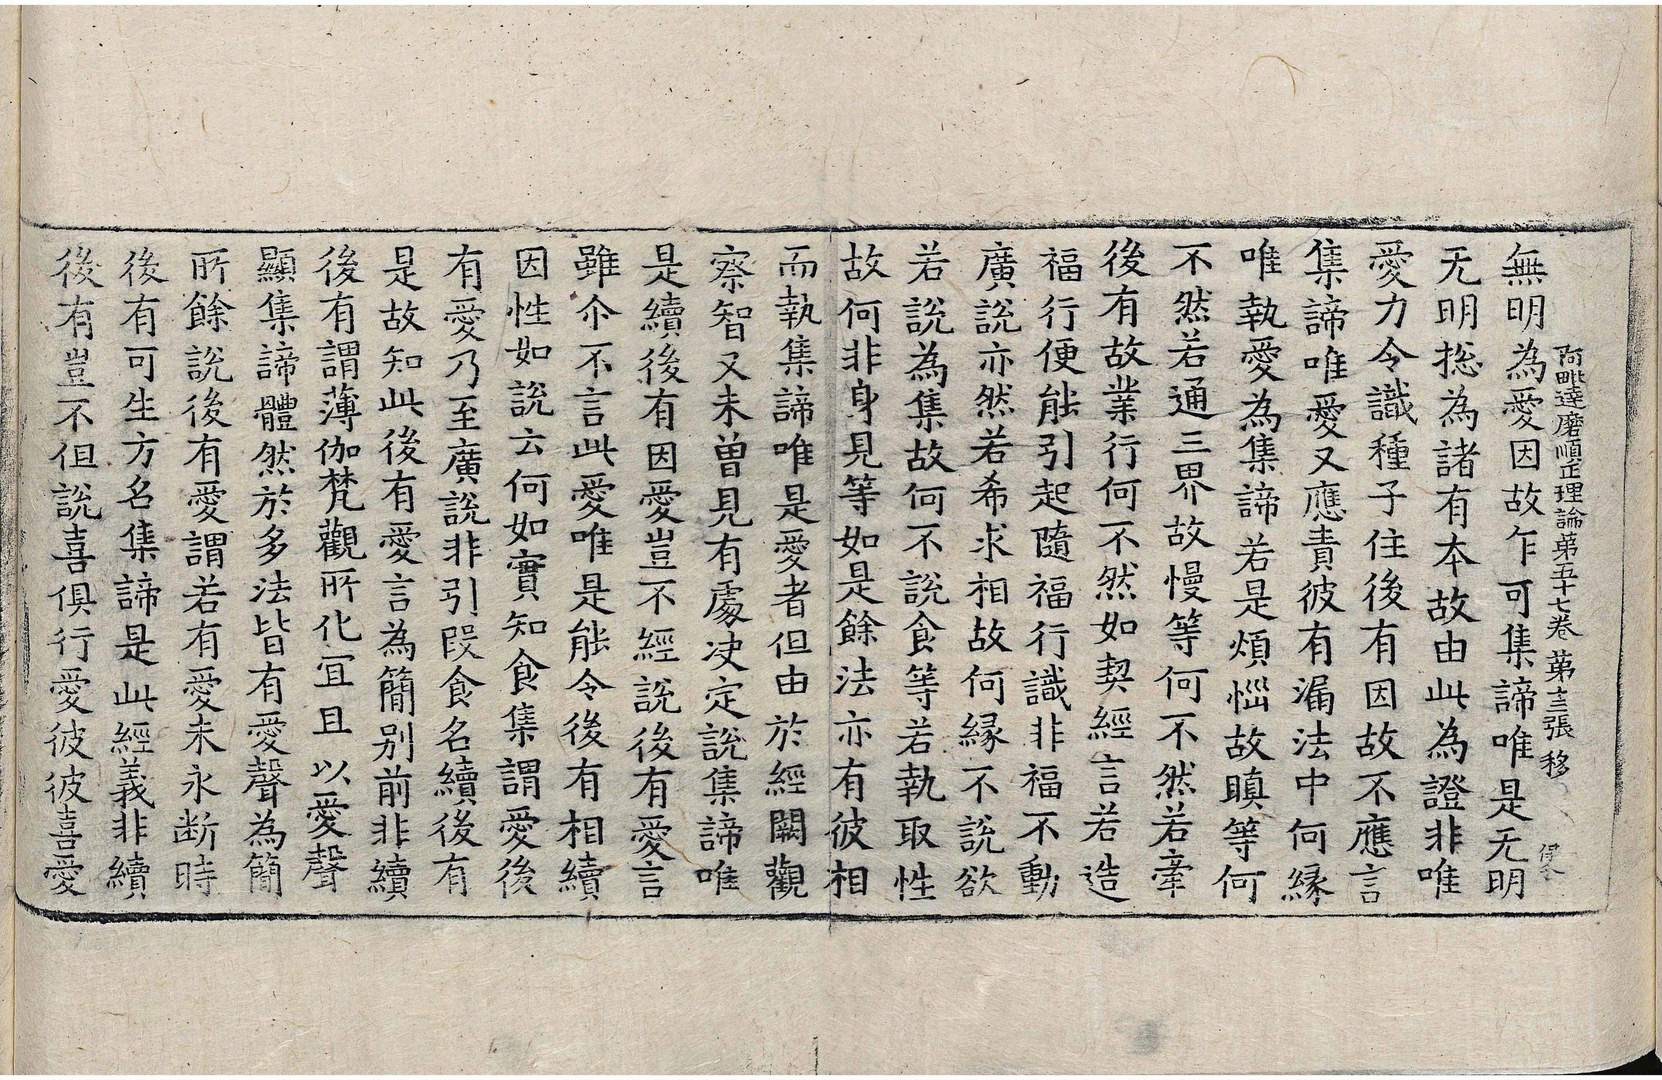 阿毗達磨順正理論第五十七卷 第十三張 移
無明為愛因故乍可集諦唯是无明
无明捴為諸有本故由此為證非唯
愛力令識種子住後有因故不應言
集諦唯愛又應責彼有漏法中何縁
唯執愛為集諦若是煩惱故瞋等何
不然若通三界故慢等何不然若牽
後有故業行何不然如契經言若造
福行便能引起隨福行識非福不動
廣說亦然若希求相故何縁不說欲
若說為集故何不說食等若執取性
故何非身見等如是餘法亦有彼相
而執集諦唯是愛者但由於經闕觀
察智又未曾見有處决定說集諦唯
是續後有因愛豈不經說後有愛言
雖尒不言此愛唯是能令後有相續
因性如說云何如實知食集謂愛後
有愛乃至廣說非引段食名續後有
是故知此後有愛言為簡别前非續
後有謂薄伽梵觀所化冝且以愛聲
顯集諦體然於多法皆有愛聲為簡
所餘說後有愛謂若有愛未永断時
後有可生方名集諦是此經義非續
後有豈不但說喜俱行愛彼彼喜愛